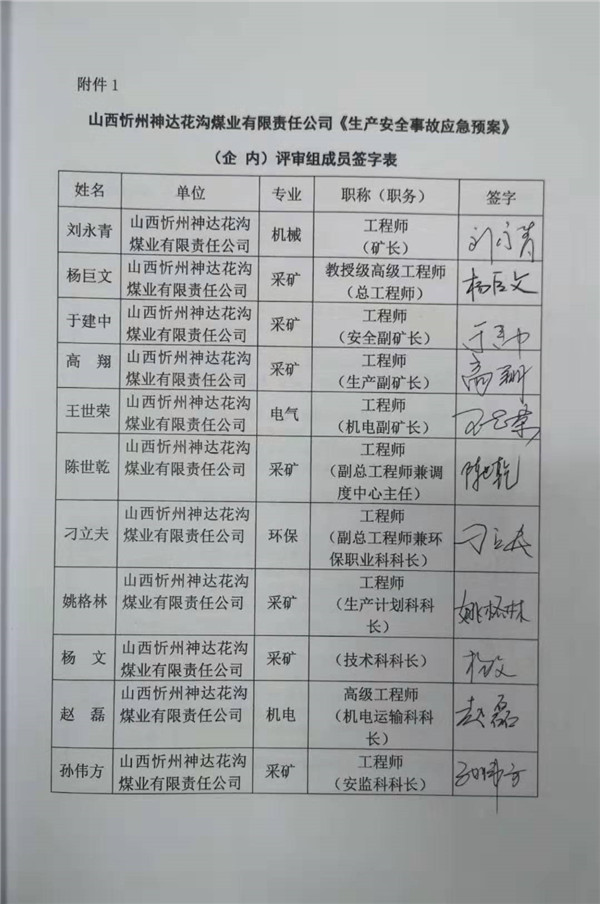 附件 1
山西忻州神达花沟煤业有限责任公司《生产安全事故应急预案》
（企 内）评审组成员签字表
姓名 单位 专业 职称（职务） 签字
刘永青 山西忻州神达花沟 机械 工程师 刘永青
煤业有限责任公司 （矿长）
杨巨文 山西忻州神达花沟 采矿 教授级高级工程师 杨巨文
煤业有限责任公司 （总工程师）
于建中 山西忻州神达花沟 采矿 工程师 于建中
煤业有限责任公司 （安全副矿长）
高 翔 山西忻州神达花沟 采矿 工程师 高翔
煤业有限责任公司 （生产副矿长）
王世荣 山西忻州神达花沟 电气 工程师 王世荣
煤业有限责任公司 （机电副矿长）
陈世乾 山西忻州神达花沟 采矿 工程师 陈世乾
煤业有限责任公司 （副总工程师兼调
度中心主任）
刁立夫 山西忻州神达花沟 环保 工程师 刁立夫
煤业有限责任公司 （副总工程师兼环
保职业科科长）
姚格林 山西忻州神达花沟 采矿 工程师 姚格林
煤业有限责任公司 （生产计划科科
长）
杨 文 山西忻州神达花沟 采矿 （技术科科长） 杨文
煤业有限责任公司
赵 磊 山西忻州神达花沟 机电 高级工程师 赵磊
煤业有限责任公司 （机电运输科科
长）
孙伟方 山西忻州神达花沟 采矿 工程师 孙伟方
煤业有限责任公司 （安监科科长）